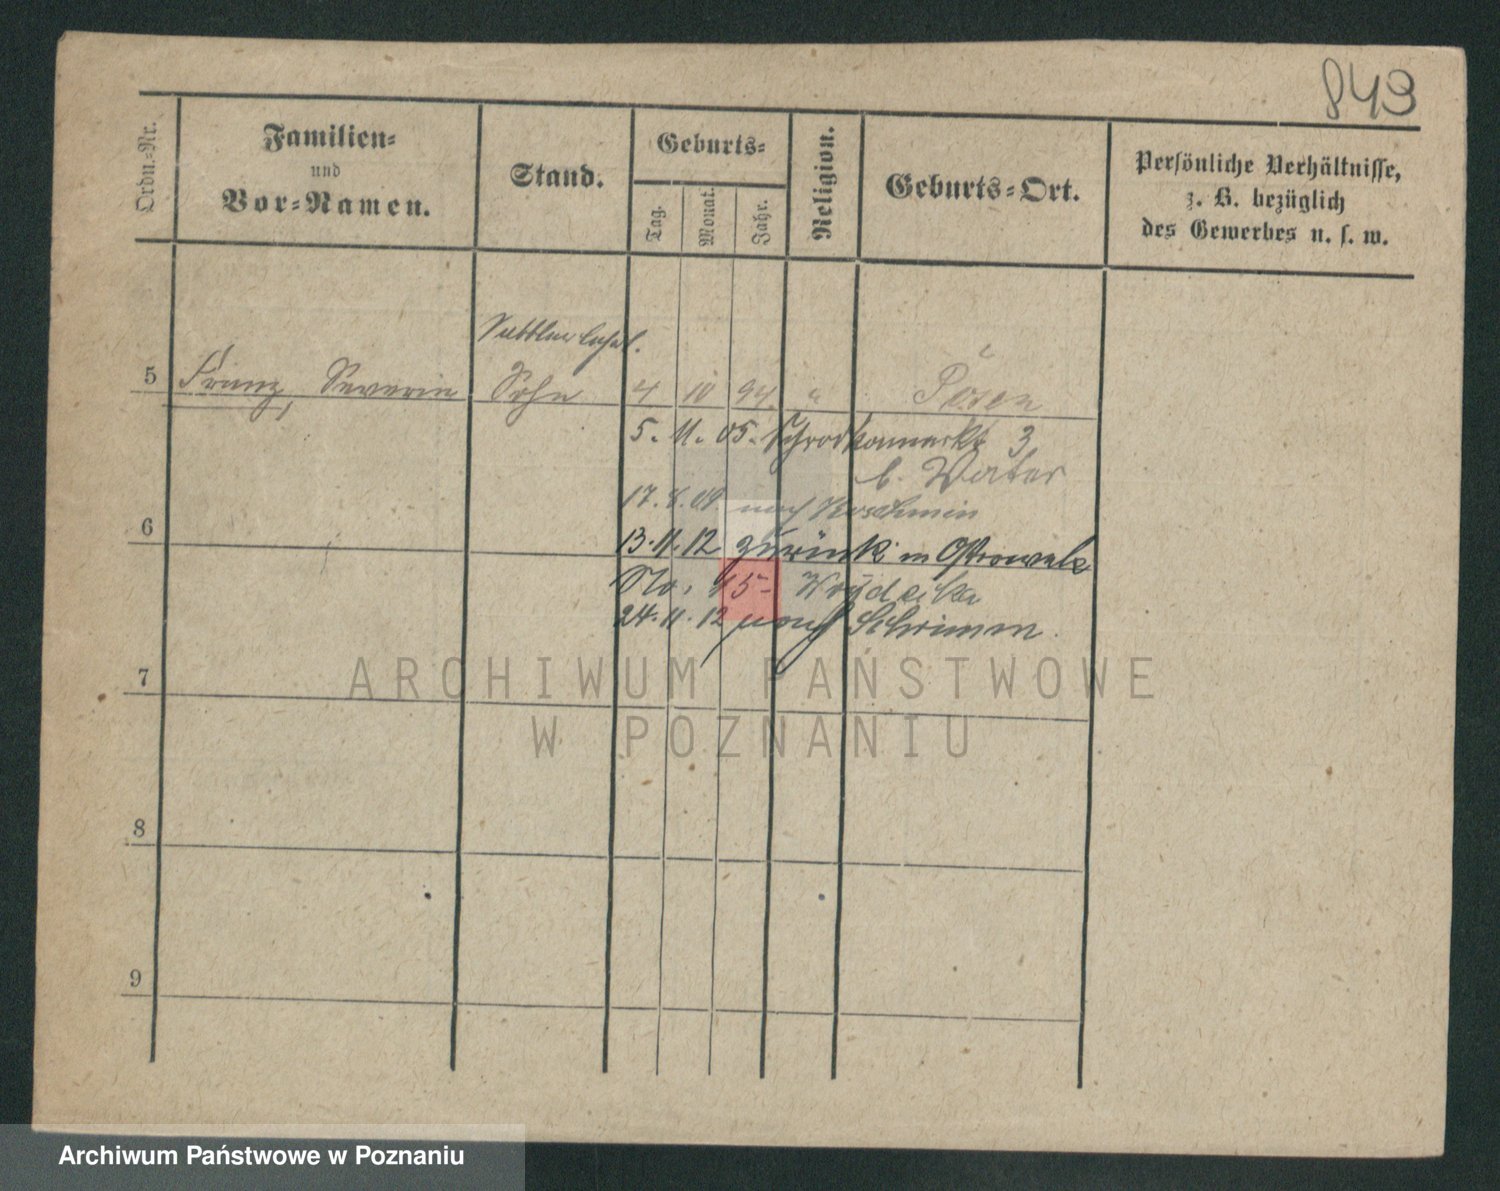 843
Ordn.-Nr.
Familien-
und
Vor-Namen.
Stand.
Geburts-
Tag.
Monat.
Jahr.
Religion.
Geburts-Ort.
Persönliche Verhältnisse,
z. B. bezüglich
des Gewerbes u. s. w.
Sattler
5 Franz, Severin Sohn 4 10 94. " Posen
5. 11. 05. Schrodkamarkt 3
b. Vater
17. 8. 09. nach
6
13. 11. 12 zurück in Ostrowek
No. 15- Woydecka
24. 11. 12 nach Schrimm.
7
ARCHIWUM PAŃSTWOWE
W POZNANIU
8
9
Archiwum Państwowe w Poznaniu